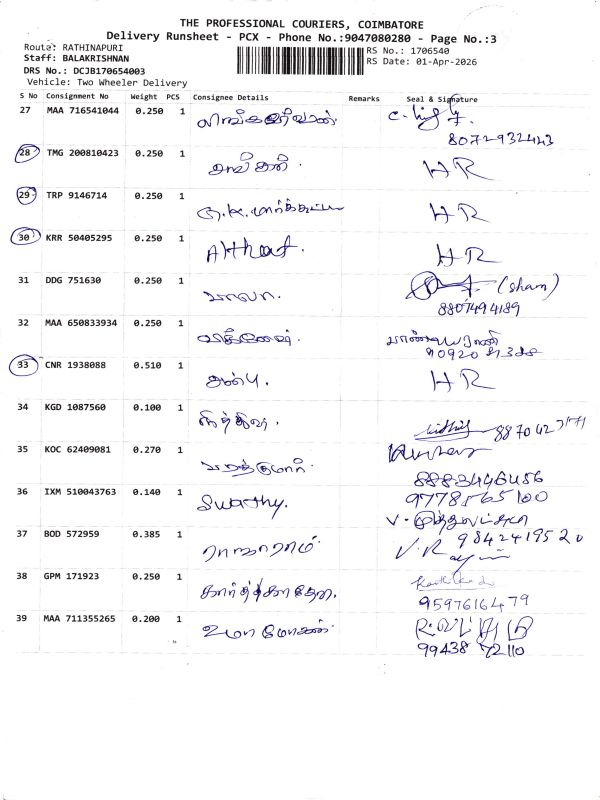 THE PROFESSIONAL COURIERS, COIMBATORE
Delivery Runsheet - PCX - Phone No.:9047080280 - Page No.:3
Route: RATHINAPURI
RS No.: 1706540
Staff: BALAKRISHNAN
RS Date: 01-Apr-2026
DRS No.: DCJB170654003
Vehicle: Two Wheeler Delivery
S No Consignment No Weight PCS Consignee Details Remarks Seal & Signature
27 MAA 716541044 0.250 1
8072932443
28 TMG 200810423 0.250 1 HR
29 TRP 9146714 0.250 1 HR
30 KRR 50405295 0.250 1 Althaf. HR
31 DDG 751630 0.250 1 மாலா. (sham)
8807494189
32 MAA 650833934 0.250 1
33 CNR 1938088 0.510 1 அன்பு. HR
34 KGD 1087560 0.100 1
35 KOC 62409081 0.270 1
8883446456
36 IXM 510043763 0.140 1 Swathy. 9778565100
37 BOD 572959 0.385 1 ராஜாராம். 9842419520
38 GPM 171923 0.250 1
9597616479
39 MAA 711355265 0.200 1 உமா மோகன்.
99438 72110